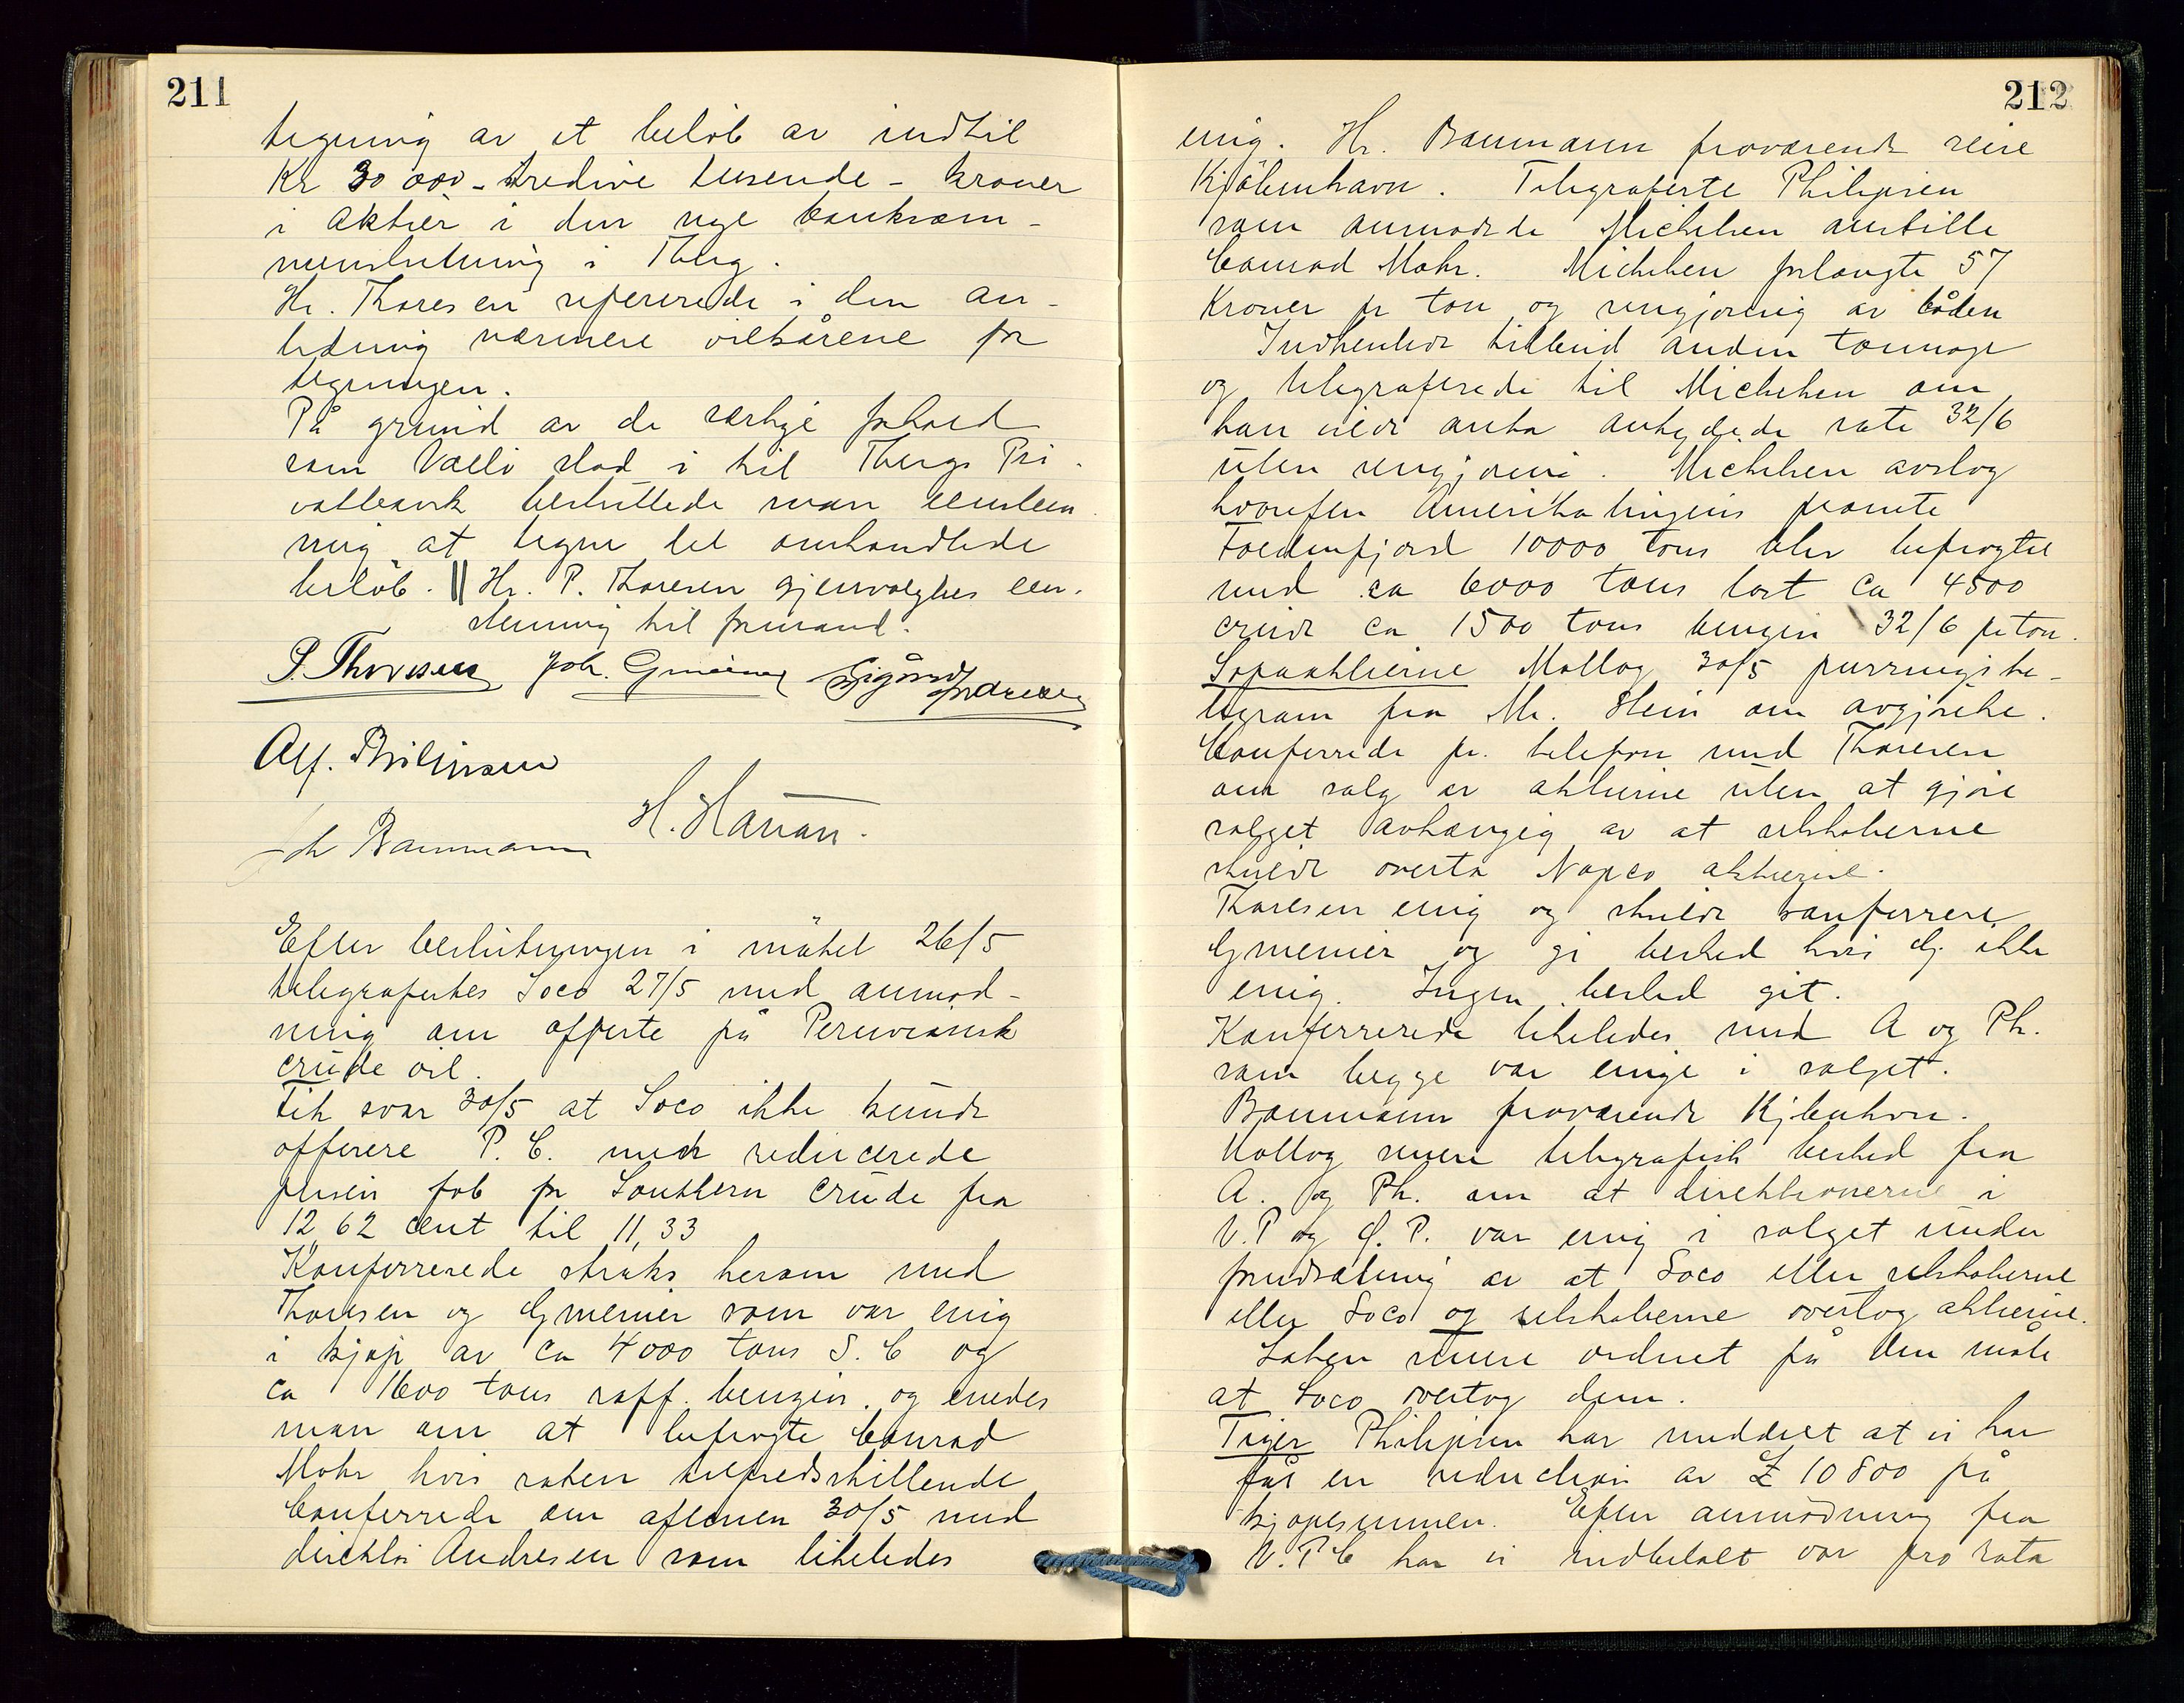 211
tegning av et beløb av indtil
Kr 30 000 - tredive tusende - kroner
i aktier i den nye banksam-
menslutning i Tbrg.
Hr. Thoresen refererede i den an-
ledning nærmere vilkårene for
tegningen.
På grund av de særlige forhold
som Vallø stod i til Tbergs Pri-
vatbank besluttede man eenstem-
mig at tegne det omhandlede
beløb. || Hr. P. Thoresen gjenvalgtes een-
stemmig til formand.
P. Thoresen Joh. Gmeiner Sigurd Andresen
Alf. Philipsen
Joh Baumann H. Hansen.
Efter beslutningen i møtet 26/5
telegrafertes Soco 27/5 med anmod-
ning om offerte på Peruviansk
crude oil.
Fik svar 30/5 at Soco ikke kunde
offerere P. C. men reducerede
prisen fob for Southern crude fra
12,62 cent til 11,33
Konfererede straks herom med
Thoresen og Gmeiner som var enig
i kjøp av ca 4000 tons S. C og
ca 1600 tons raff. benzin, og enedes
man om at befragte Conrad
Mohr hvis raten tilfredsstillende
Conferrede om aftenen 30/5 med
direktør Andresen som likeledes
212
enig. Hr. Baumann fraværende reise
Kjøbenhavn. Telegraferte Philipsen
som anmodede Michelsen anstille
Conrad Mohr. Michelsen forlangte 57
Kroner pr ton og rengjøring av båden
Indhentede tilbud anden tonnage
og telegraferede til Michelsen om
han vilde anta antydede rate 32/6
uten rengjøring. Michelsen avslog
hvorefter Amerikalinjens prompte
Foldenfjord 10000 tons blev befragtet
med ca 6000 tons last ca 4500
crude ca 1500 tons benzin 32/6 pr ton.
Sopaaktierne Mottog 30/5 purringste-
legram fra Mr. Hein om avgjørelse.
Conferrede pr. telefon med Thoresen
om salg av aktierne uten at gjøre
salget avhængig av at selskaberne
skulde overta Napco aktierne.
Thoresen enig og skulde konferrere
Gmeiner og gi besked hvis G. ikke
enig. Ingen besked git.
Konfererede likeledes med A og Ph.
som begge var enige i salget.
Baumann fraværende Kjbenhvn.
Mottog senere telegrafisk besked fra
A. og Ph. om at direktionerne i
V.P og Ø. P. var enig i salget under
forudsætning av at Soco eller selskaberne
eller Soco og selskaberne overtog aktierne.
Saken senere ordnet på den måte
at Soco overtog dem.
Tiger Philipsen har meddelt at vi har
fåt en reduction av £ 10800 på
kjøpesummen. Efter anmodning fra
V.P.C har vi indbetalt vor pro rata